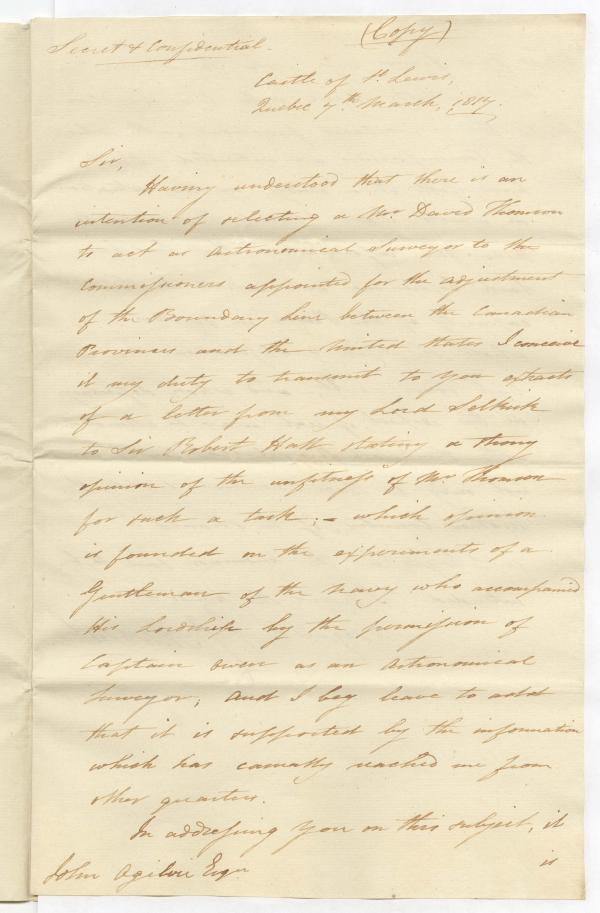 (Copy)
Secret & Confidential.
Castle of St. Lewis,
Quebec 7th March, 1817.
Sir,
Having understood that there is an
intention of selecting a Mr David Thomson
to act as Astronomical Surveyor to the
Commissioners appointed for the adjustment
of the Boundary Line between the Canadian
Provinces and the United States I conceive
it my duty to transmit to you extracts
of a letter from my Lord Selkirk
to Sir Robert Hall stating a strong
opinion of the unfitness of Mr Thomson
for such a task; - which opinion
is founded on the experiments of a
Gentleman of the Navy who accompanied
His Lordship by the permission of
Captain Owen as an Astronomical
Surveyor; And I beg leave to add
that it is supported by the information
which has casually reached me from
other quarters.
In addressing You on this subject, it
is
John Ogilvie Esqr